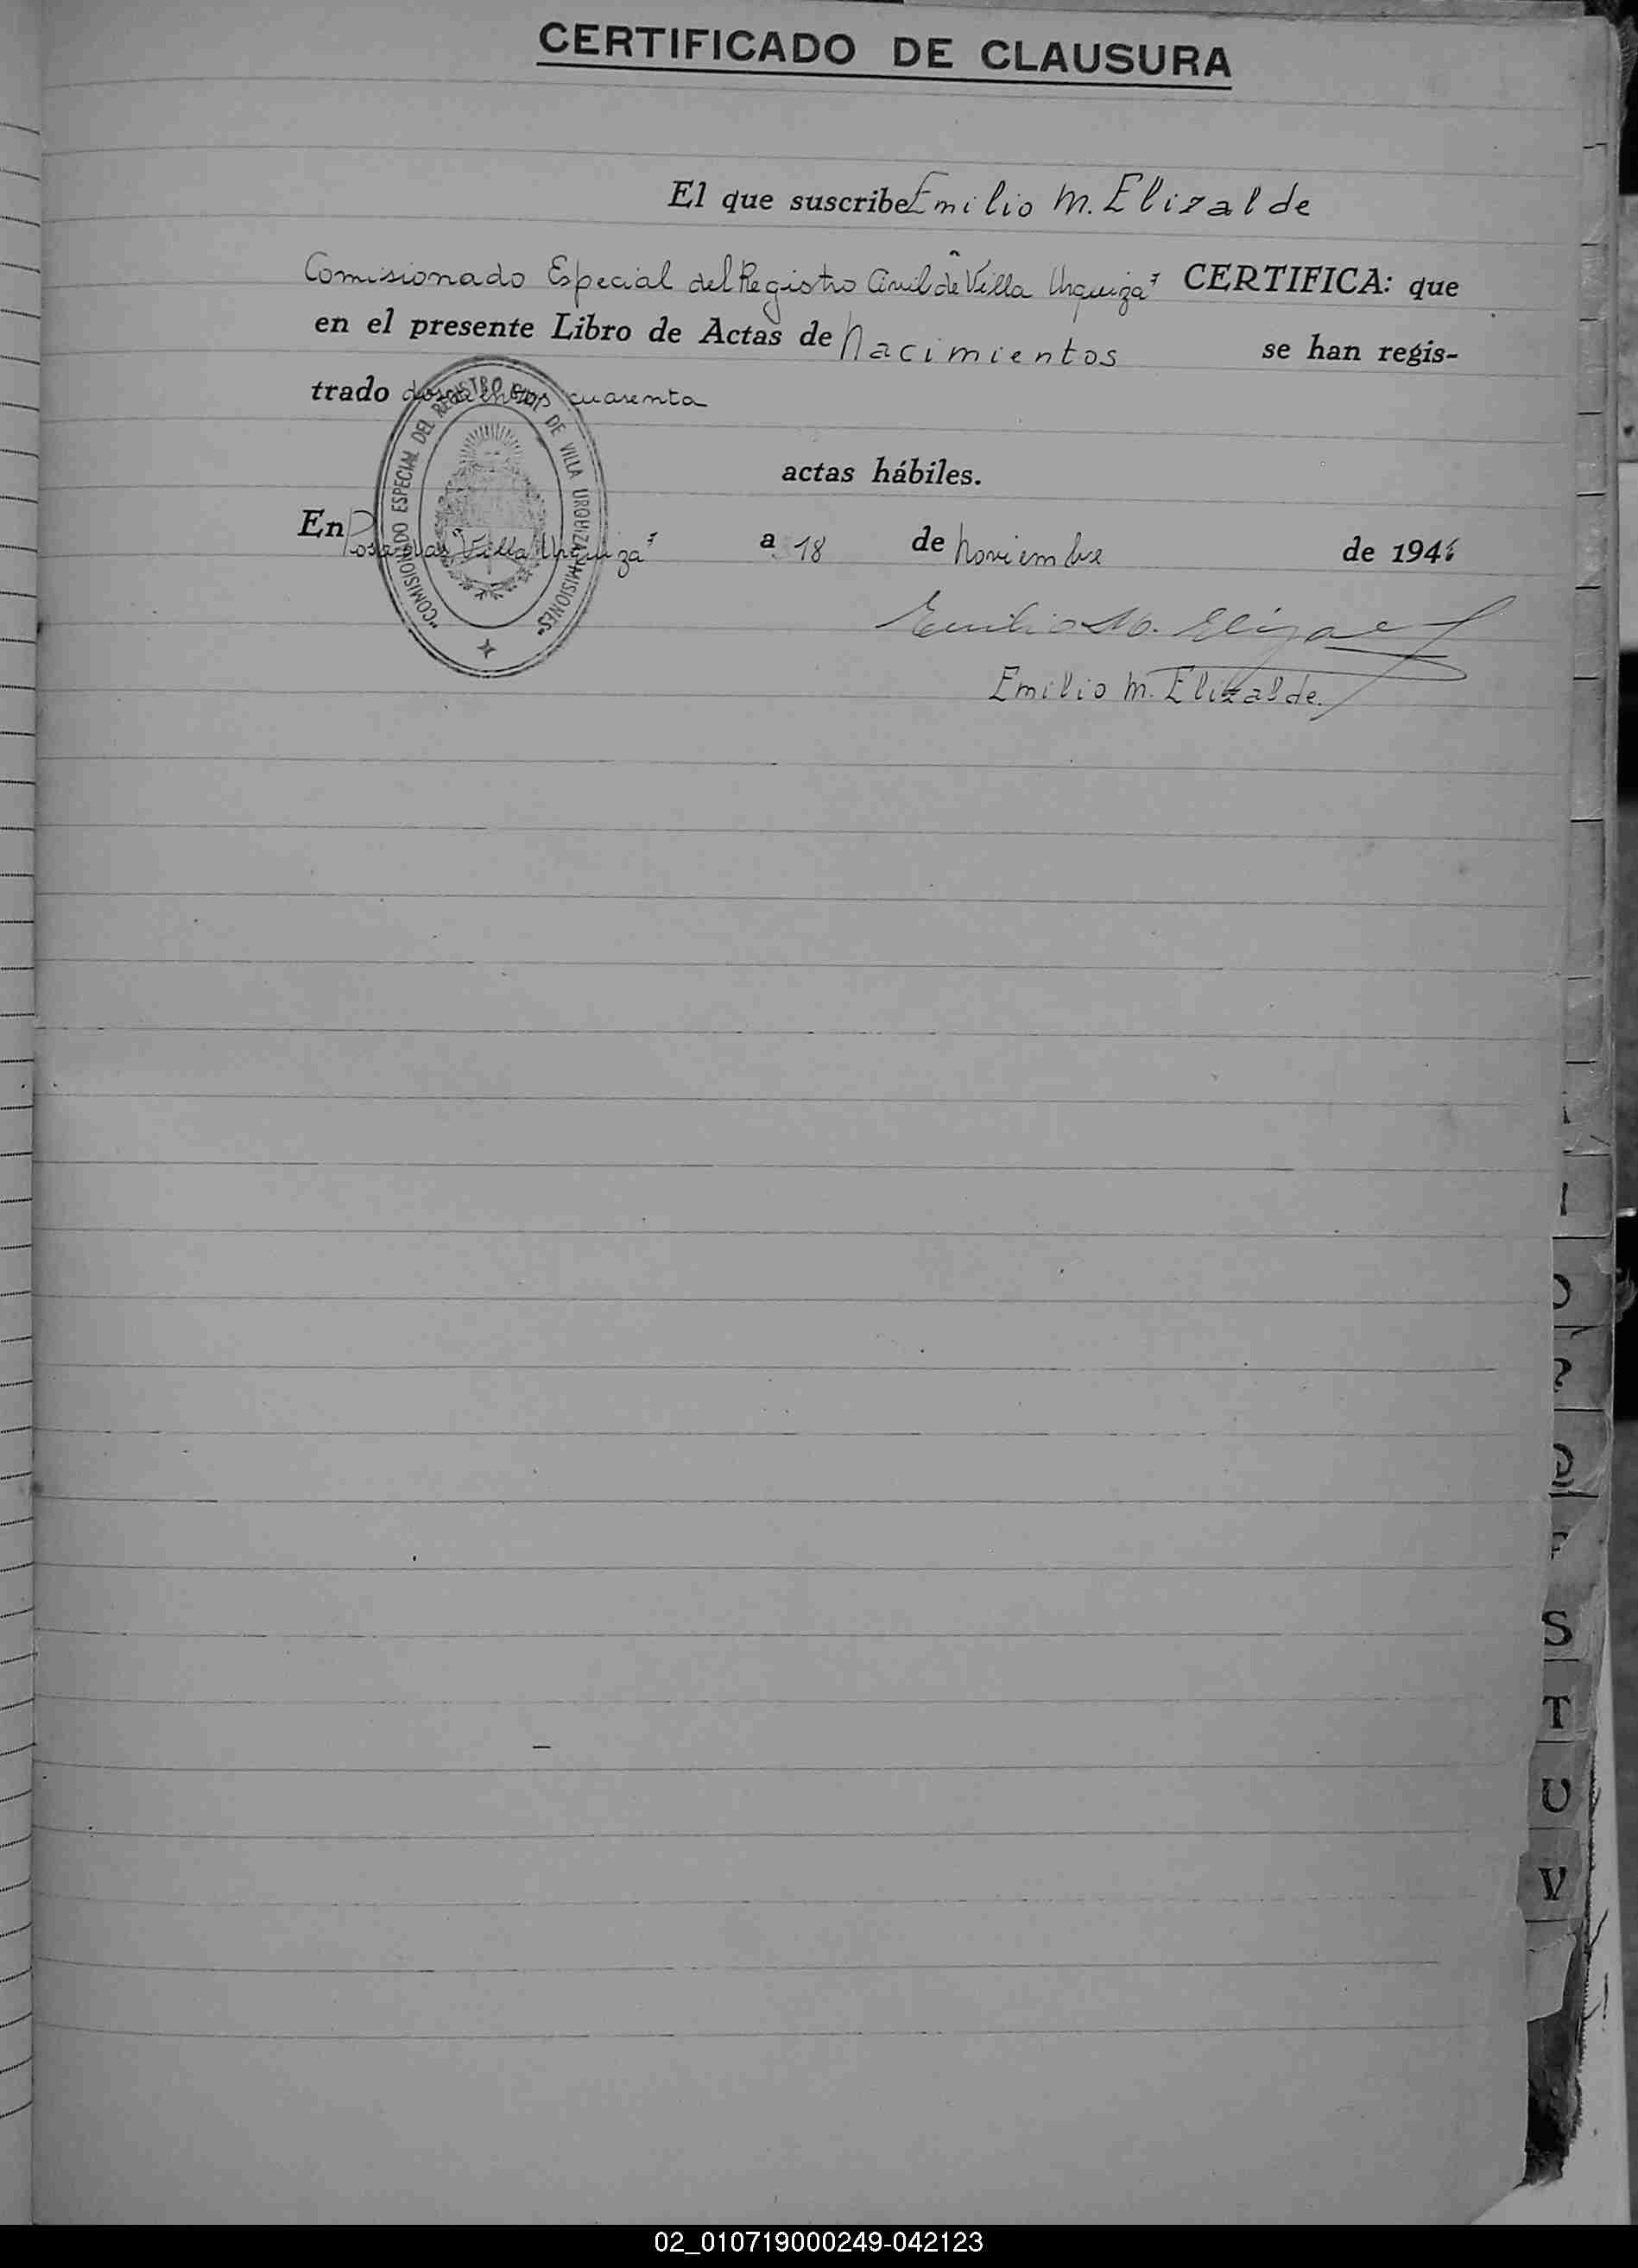 CERTIFICADO DE CLAUSURA
El que suscribe Emilio M. Elizalde
Comisionado Especial del Registro Civil de "Villa Urquiza" CERTIFICA: que
en el presente Libro de Actas de Nacimientos se han regis-
trado doscientos cuarenta
actas hábiles.
En Posadas "Villa Urquiza" a 18 de Noviembre de 194
"COMISIONADO ESPECIAL DEL REGISTRO CIVIL DE VILLA URQUIZA MISIONES"
Emilio M. Elizalde
Emilio M. Elizalde.
S
T
U
V
02_010719000249-042123